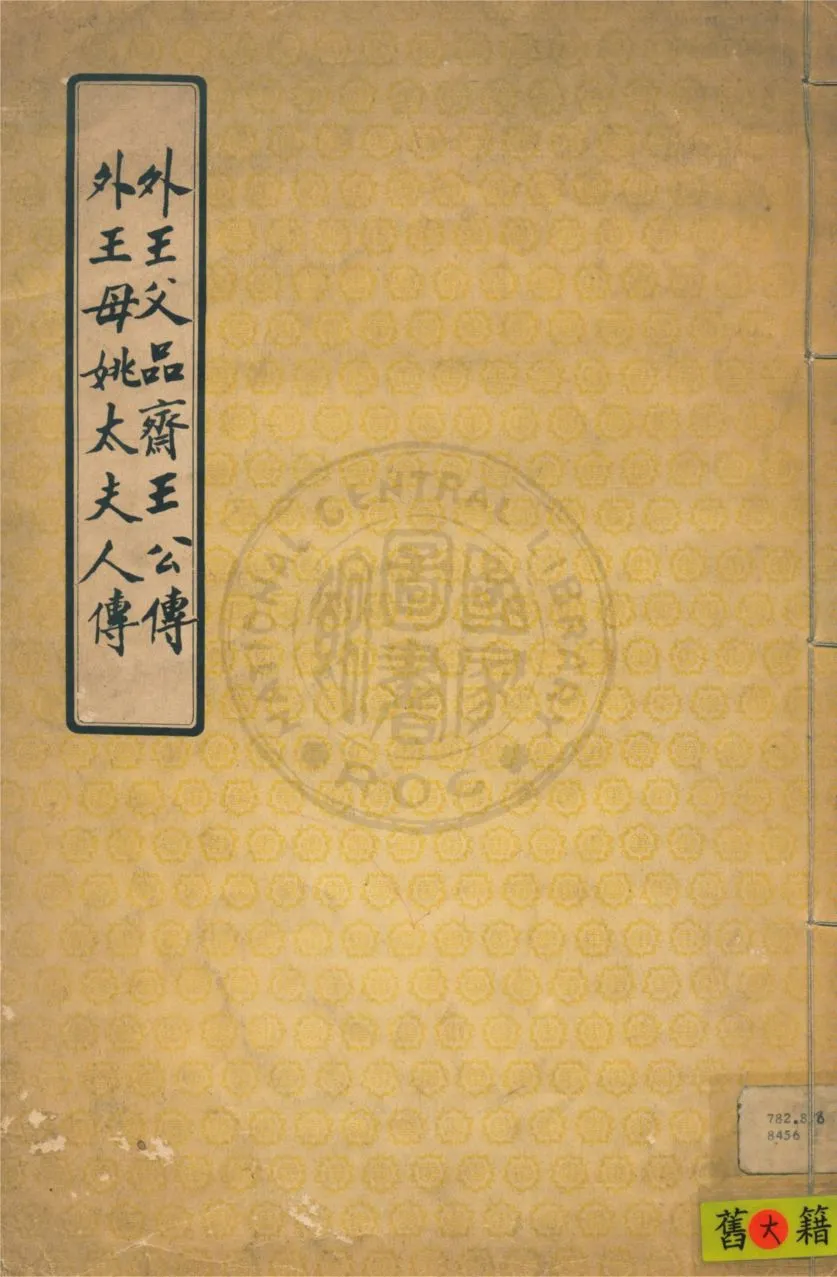 外王父品齋王公傳
外王母姚太夫人傳
NATIONAL CENTRAL LIBRARY
國家圖書館
ROC
782.8
8456
舊大籍